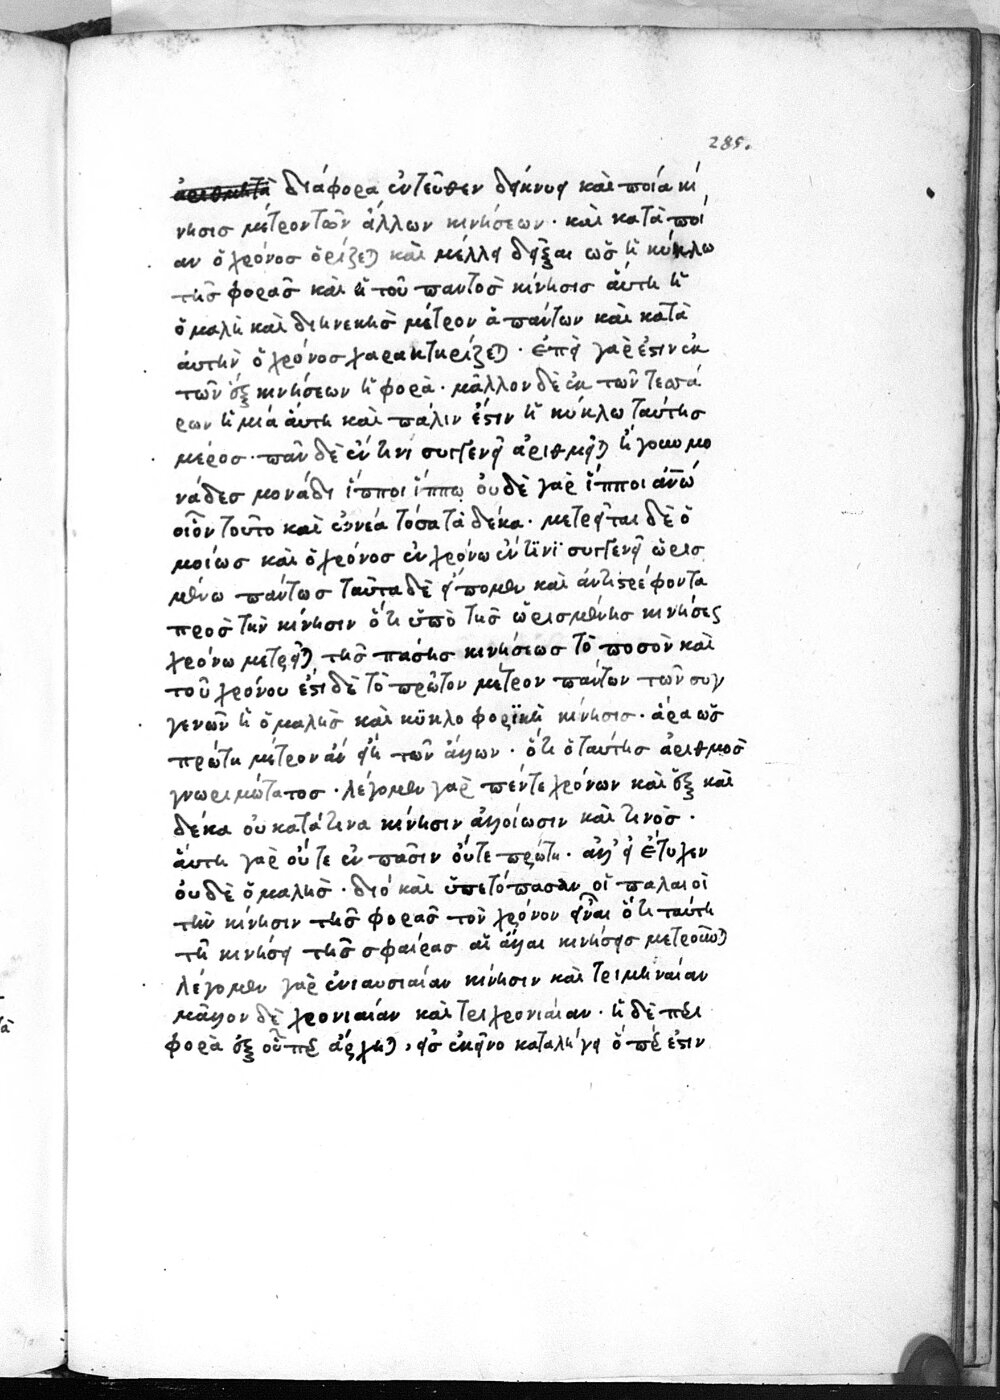 285.
ἀριθμητὰ διάφορα ἐντεῦθεν δείκνυσι καὶ ποία κί
νησισ μέτρον τῶν ἄλλων κινήσεων · καὶ κατὰ ποί
αν ὁ χρόνοσ ὁρίζεται καὶ μέλλει δεῖξαι ὡσ ἡ κύκλω
τῆσ φορᾶσ καὶ ἡ τοῦ παντὸσ κίνησισ αὕτη ἡ
ὁμαλὴ καὶ διηνεκὴσ μέτρον ἁπάντων καὶ κατὰ
αὐτὴν ὁ χρόνοσ χαρακτηρίζεται · ἐπεὶ γὰρ ἐστιν ἐκ
τῶν ἓξ κινήσεων ἡ φορὰ · μᾶλλον δὲ ἐκ τῶν τεσσά
ρων ἡ μιὰ αὐτὴ καὶ πάλιν ἐστιν ἡ κύκλω ταύτησ
μέροσ · πᾶν δὲ ἑνί τινι συγγενεῖ ἀριθμεῖται ἤγουν μο
νάδεσ μονάδι ἵπποι ἵππω οὐδὲ γὰρ ἵπποι ἀνῶ
οἷον τοῦτο καὶ ἐννέα τόσα τὰ δέκα · μετρεῖται δὲ ὁ
μοίωσ καὶ ὁ χρόνοσ ἐν χρόνω ἑνί τινϊ συγγενεῖ ὡρισ
μένω πάντωσ ταῦτα δὲ εἴπομεν καὶ ἀντιστρέφοντα
πρὸσ τὴν κίνησιν ὅτι ὑπὸ τῆσ ὡρισμένησ κινήσεωσ
χρόνω μετρεῖται τῆσ πάσησ κινήσεωσ τὸ ποσὸν καὶ
τοῦ χρόνου ἐστι δὲ τὸ πρῶτον μέτρον πάντων τῶν συγ
γενῶν ἡ ὁμαλὴσ καὶ κϋκλοφορϊκὴ κίνησισ · ἄρα ὡσ
πρώτη μέτρον ἂν εἴη τῶν ἄλλων · ὅτι ὁ ταύτησ ἀριθμὸσ
γνωριμώτατοσ · λέγομεν γὰρ πέντε χρόνων καὶ ἓξ καὶ
δέκα οὐ κατά τινα κίνησιν ἀλλοίωσιν καὶ τινὸσ ·
αὕτη γὰρ οὔτε ἐν πᾶσιν οὔτε πρώτη · ἀλλ' εἰ ἔτυχεν
οὐδὲ ὁμαλὴσ · διό καὶ ὑπετόπασαν οἱ παλαιοὶ
τὴν κίνησιν τῆσ φορᾶσ τὸν χρόνον εἶναι ὅτι ταύτη
τῆ κινήσει τῆσ σφαίρασ αἱ ἄλλαι κινήσεισ μετροῦνται
λέγομεν γὰρ ἐνιαυσιαίαν κίνησιν καὶ τριμηναίαν
μᾶλλον δὲ χρονιαίαν καὶ τριχρονιαίαν · ἡ δὲ περι
φορὰ ἐξ οὗπερ ἄρχηται, εἰσ ἐκεῖνο καταλήγει ὅπέρ ἐστιν